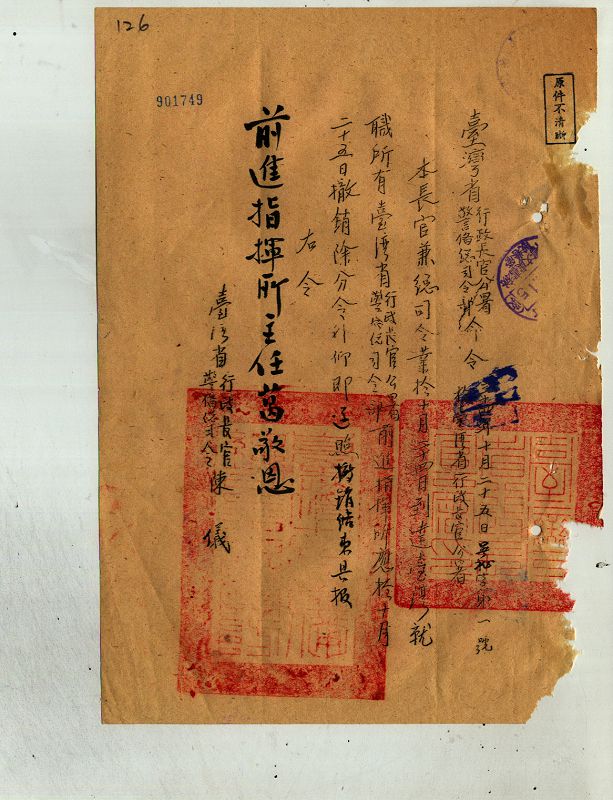 126
901749
原件不清晰
臺灣省行政長官公署警備總司令部命令
三十四年十月二十五日 署秘字第一號
於臺灣省行政長官公署
本長官兼總司令業於十月二十四日到達臺灣就
職所有臺灣省行政長官公署警備總司令部前進指揮所應於十月
二十五日撤銷除分令外仰即遵照撤銷結束具报
右令
前進指揮所主任葛敬恩
臺灣省行政長官警備總司令陳 儀